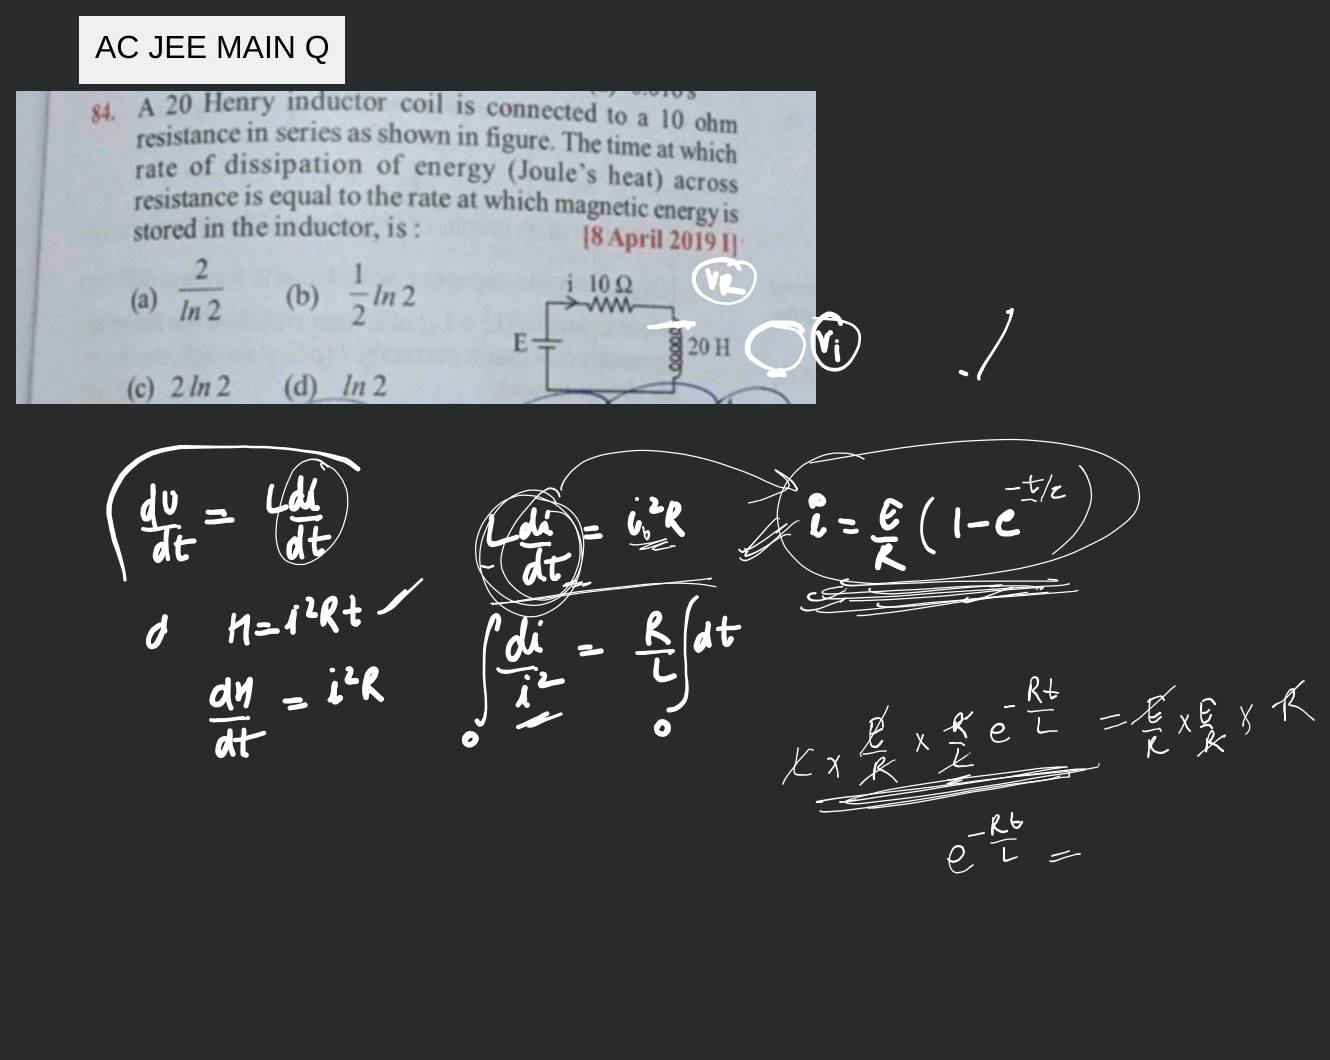 AC JEE MAIN Q
84. A 20 Henry inductor coil is connected to a 10 ohm
resistance in series as shown in figure. The time at which
rate of dissipation of energy (Joule's heat) across
resistance is equal to the rate at which magnetic energy is
stored in the inductor, is :
[8 April 2019 I]
(a) 2/ln 2 (b) 1/2 ln 2
(c) 2 ln 2 (d) ln 2
i 10 Ω
E
20 H
VR
Vi
dU/dt = L di/dt
H = i²Rt
dH/dt = i²R
L di/dt = i²R
∫₀ di/i² = R/L ∫₀ dt
i = E/R (1 - e^(-t/τ))
L x E/R x R/L e^(-Rt/L) = E/R x E/R x R
e^(-Rt/L) =